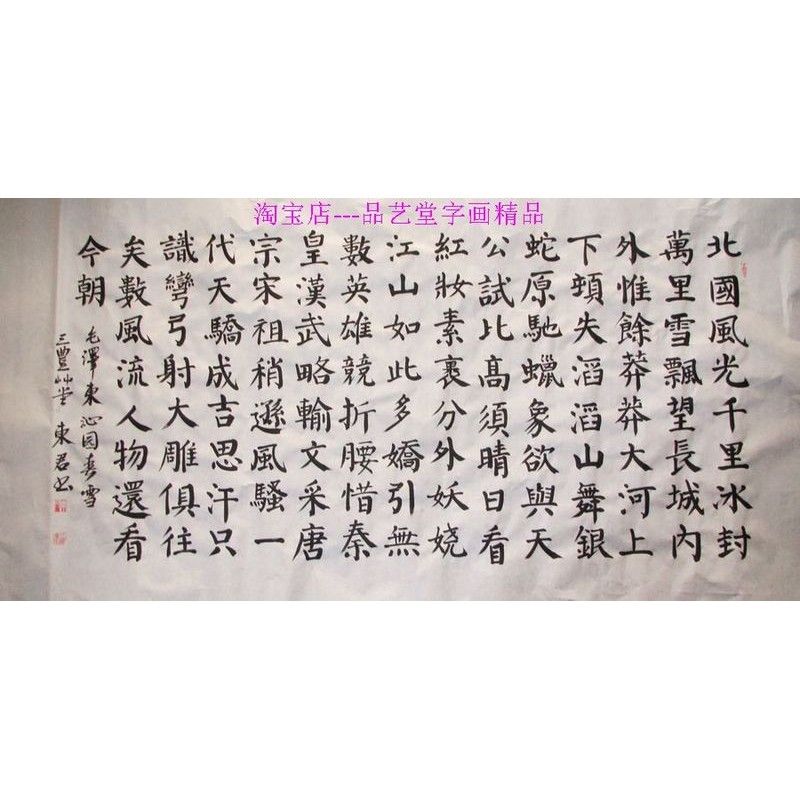 淘宝店---品艺堂字画精品
北國風光千里冰封
萬里雪飄望長城內
外惟餘莽莽大河上
下頓失滔滔山舞銀
蛇原馳蠟象欲與天
公試比高須晴日看
紅妝素裹分外妖娆
江山如此多嬌引無
數英雄競折腰惜秦
皇漢武略輸文采唐
宗宋祖稍遜風騷一
代天驕成吉思汗只
識彎弓射大雕俱往
矣數風流人物還看
今朝
毛澤東沁园春雪
三豐艸堂 東君书